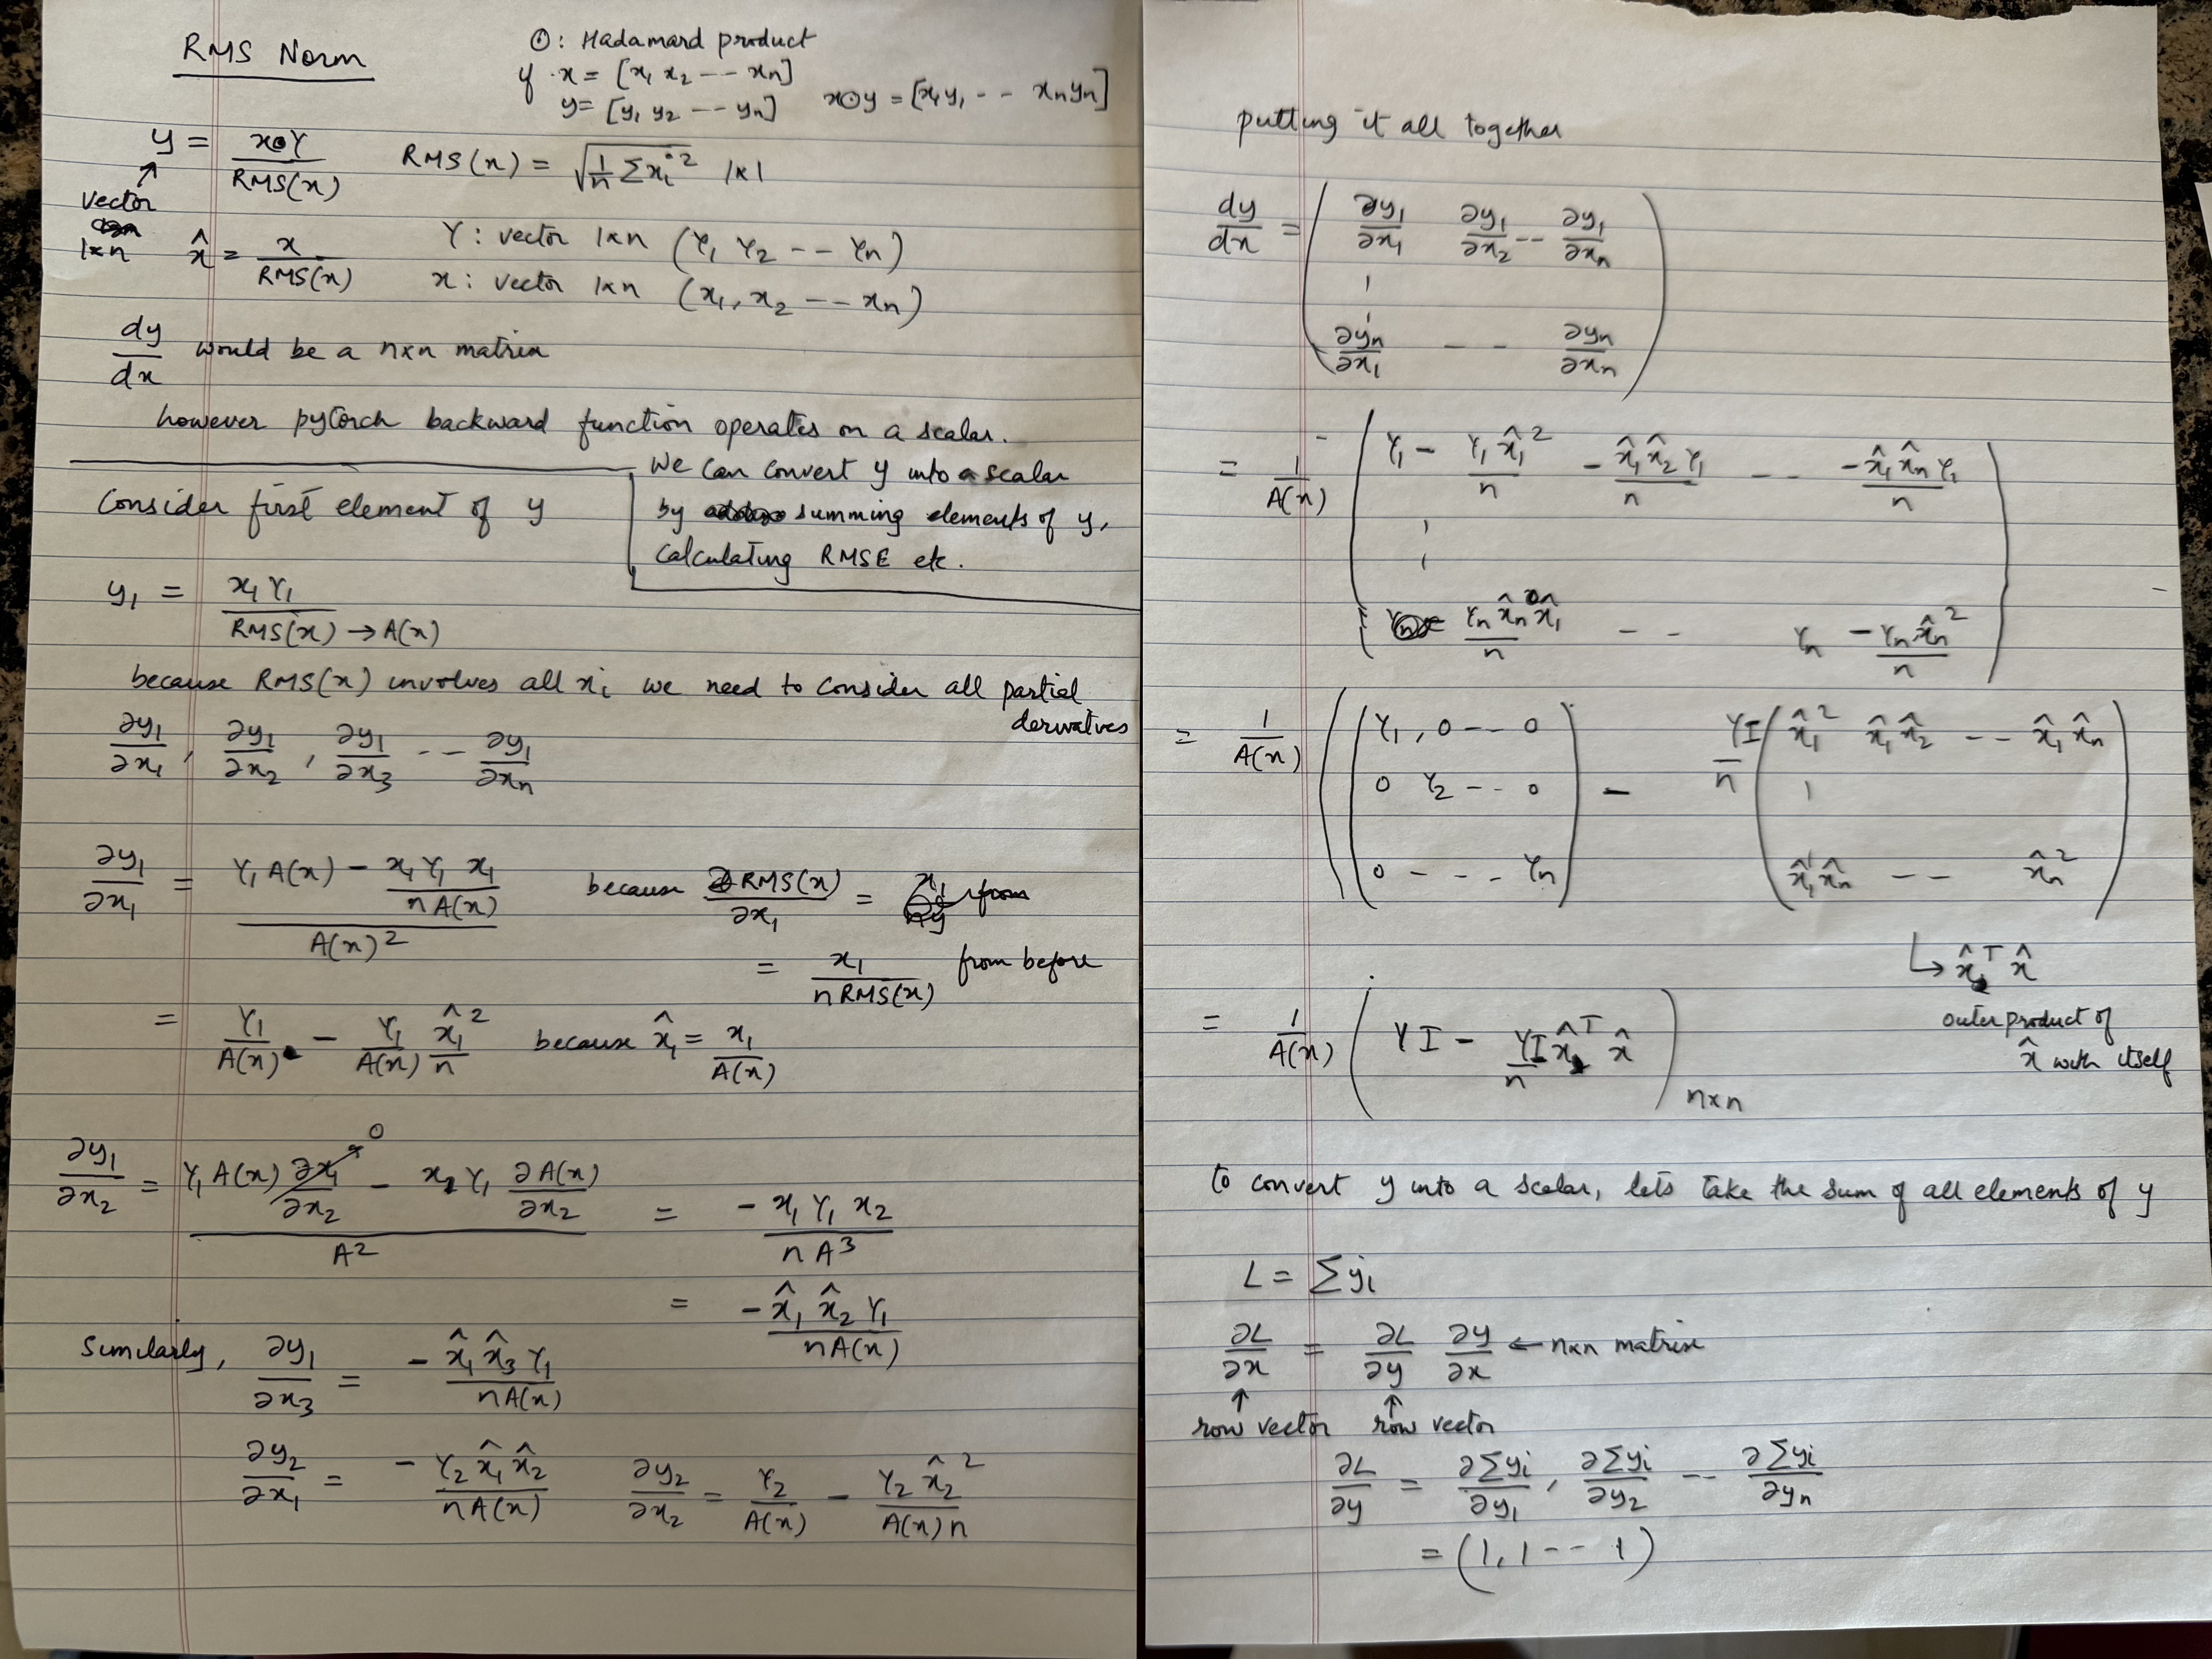 RMS Norm
⊙: Hadamard product
if x = [x₁ x₂ -- xₙ]
y = [y₁ y₂ -- yₙ] x⊙y = [x₁y₁ -- xₙyₙ]
y = x⊙γ / RMS(x) RMS(x) = √(1/n Σxᵢ²) 1×1
vector
1×n
x̂ = x / RMS(x) γ: vector 1×n (γ₁ γ₂ -- γₙ)
x: vector 1×n (x₁, x₂ -- xₙ)
dy/dx would be a n×n matrix
however pytorch backward function operates on a scalar.
We can convert y into a scalar
by summing elements of y,
calculating RMSE etc.
Consider first element of y
y₁ = x₁γ₁ / RMS(x) → A(x)
because RMS(x) involves all xᵢ we need to consider all partial
derivatives
∂y₁/∂x₁, ∂y₁/∂x₂, ∂y₁/∂x₃ -- ∂y₁/∂xₙ
∂y₁/∂x₁ = (γ₁A(x) - x₁γ₁ x₁/(nA(x))) / A(x)² because ∂RMS(x)/∂x₁ = from
= x₁ / nRMS(x) from before
= γ₁/A(x) - γ₁/A(x) x̂₁²/n because x̂₁ = x₁/A(x)
∂y₁/∂x₂ = (γ₁A(x) ∂x₁/∂x₂ → 0 - x₁γ₁ ∂A(x)/∂x₂) / A² = - x₁γ₁x₂ / nA³
= - x̂₁x̂₂γ₁ / nA(x)
Similarly, ∂y₁/∂x₃ = - x̂₁x̂₃γ₁ / nA(x)
∂y₂/∂x₁ = - γ₂x̂₁x̂₂ / nA(x) ∂y₂/∂x₂ = γ₂/A(x) - γ₂x̂₂² / A(x)n
putting it all together
dy/dx = ( ∂y₁/∂x₁ ∂y₁/∂x₂ -- ∂y₁/∂xₙ
∂yₙ/∂x₁ -- ∂yₙ/∂xₙ )
= 1/A(x) ( γ₁ - γ₁x̂₁²/n - x̂₁x̂₂γ₁/n -- - x̂₁x̂ₙγ₁/n
- γₙx̂ₙx̂₁/n -- γₙ - γₙx̂ₙ²/n )
= 1/A(x) ( ( γ₁, 0 -- 0 ) - γI/n ( x̂₁² x̂₁x̂₂ -- x̂₁x̂ₙ )
0 γ₂ -- 0
0 --- γₙ x̂₁x̂ₙ -- x̂ₙ²
↳ x̂ᵀ x̂
outer product of
x̂ with itself
= 1/A(x) ( γI - γI/n x̂ᵀ x̂ ) n×n
to convert y into a scalar, lets take the sum of all elements of y
L = Σyᵢ
∂L/∂x = ∂L/∂y ∂y/∂x ← n×n matrix
row vector row vector
∂L/∂y = ∂Σyᵢ/∂y₁, ∂Σyᵢ/∂y₂ -- ∂Σyᵢ/∂yₙ
= (1, 1 -- 1)